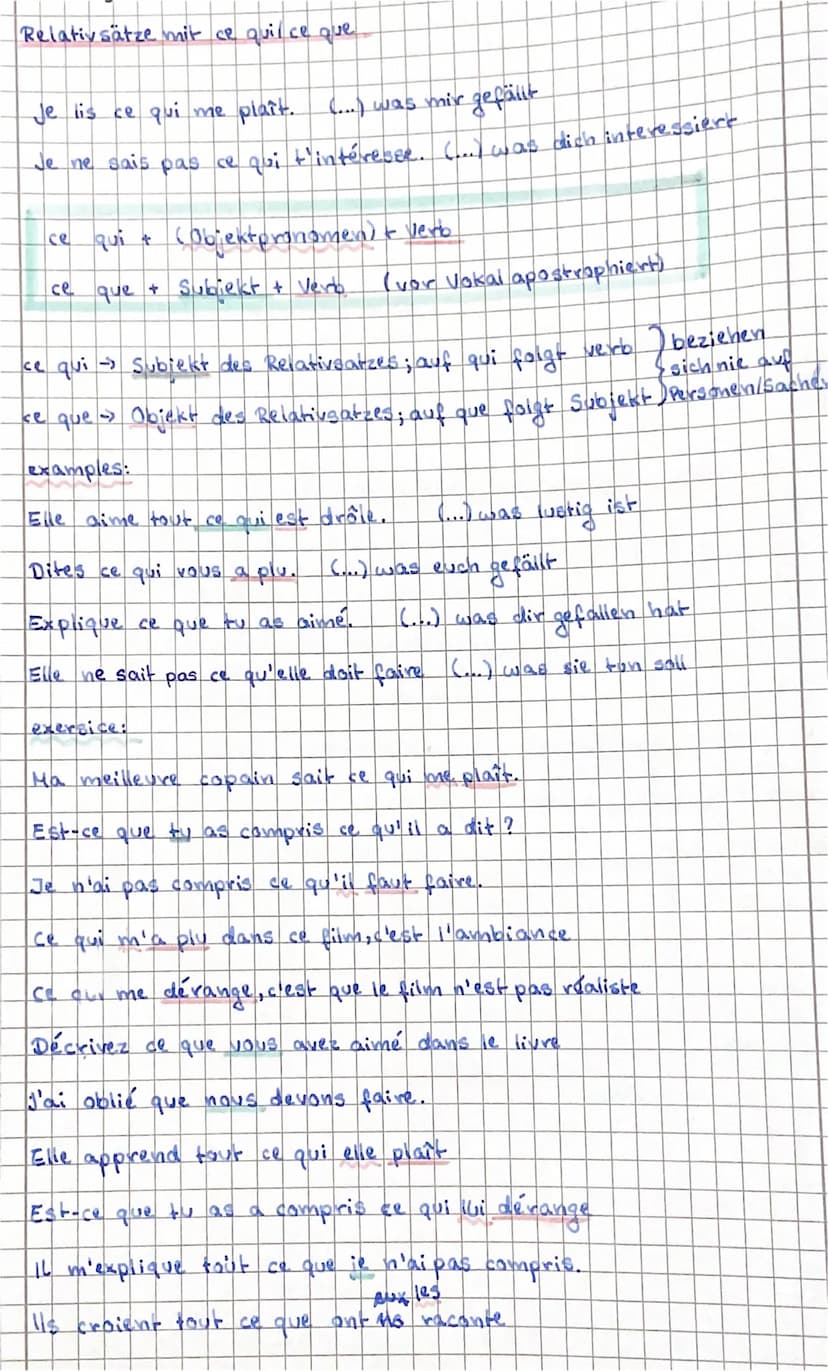 Relativsätze mit ce qui/ce que
Je lis ce qui me plaît. (...) was mir gefällt
Je ne sais pas ce qui t'intéresse. (...) was dich interessiert
ce qui + (Objektpronomen) + Verb
ce que + Subjekt + Verb (vor Vokal apostrophiert)
ce qui → Subjekt des Relativsatzes; auf qui folgt verb } beziehen
sich nie auf
ce que → Objekt des Relativsatzes; auf que folgt Subjekt Personen/Sachen
examples:
Elle aime tout ce qui est drôle. (...) was lustig ist
Dites ce qui vous a plu. (...) was euch gefällt
Explique ce que tu as aimé. (...) was dir gefallen hat
Elle ne sait pas ce qu'elle doit faire (...) was sie tun soll
exercice:
Ma meilleure copain sait ce qui me plaît.
Est-ce que tu as compris ce qu'il a dit?
Je n'ai pas compris ce qu'il faut faire.
Ce qui m'a plu dans ce film, c'est l'ambiance
Ce qui me dérange, c'est que le film n'est pas réaliste
Décrivez ce que vous avez aimé dans le livre
J'ai oblié que nous devons faire.
Elle apprend tout ce qui elle plaît
Est-ce que tu as a compris ce qui lui dérange
Il m'explique tout ce que je n'ai pas compris.
aux les
Ils croient tout ce que ont raconte